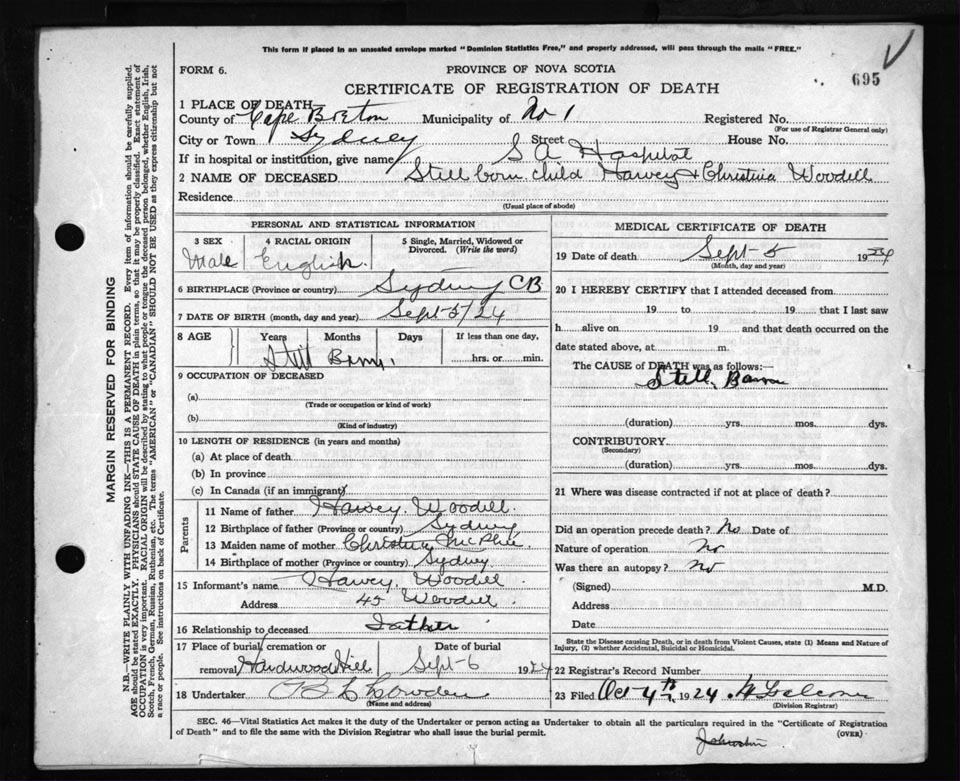 This form if placed in an unsealed envelope marked "Dominion Statistics Free," and properly addressed, will pass through the mails "FREE."
FORM 6.
PROVINCE OF NOVA SCOTIA
695
CERTIFICATE OF REGISTRATION OF DEATH
1 PLACE OF DEATH
County of Cape Breton Municipality of No 1 Registered No.
(For use of Registrar General only)
City or Town Sydney Street House No.
If in hospital or institution, give name S A Hospital
2 NAME OF DECEASED Still born child Harvey + Christina Woodell
Residence
(Usual place of abode)
PERSONAL AND STATISTICAL INFORMATION
3 SEX Male
4 RACIAL ORIGIN English
5 Single, Married, Widowed or Divorced. (Write the word)
6 BIRTHPLACE (Province or country) Sydney CB
7 DATE OF BIRTH (month, day and year) Sept 5/24
8 AGE Years Months Days If less than one day,
Still Born hrs. or min.
9 OCCUPATION OF DECEASED
(a)
(Trade or occupation or kind of work)
(b)
(Kind of industry)
10 LENGTH OF RESIDENCE (in years and months)
(a) At place of death
(b) In province
(c) In Canada (if an immigrant)
Parents
11 Name of father Harvey Woodill
12 Birthplace of father (Province or country) Sydney
13 Maiden name of mother Christina McPhie
14 Birthplace of mother (Province or country) Sydney
15 Informant's name Harvey Woodill
Address 45 Woodill
16 Relationship to deceased Father
17 Place of burial, cremation or Date of burial
removal Hardwood Hill Sept 6 1924
18 Undertaker
(Name and address)
MEDICAL CERTIFICATE OF DEATH
19 Date of death Sept 5 1924
(Month, day and year)
20 I HEREBY CERTIFY that I attended deceased from
19 to 19 that I last saw
h alive on 19 and that death occurred on
date stated above, at m.
The CAUSE of DEATH was as follows:—
Still Born
(duration) yrs. mos. dys.
CONTRIBUTORY
(Secondary)
(duration) yrs. mos. dys.
21 Where was disease contracted if not at place of death?
Did an operation precede death? No Date of
Nature of operation No
Was there an autopsy? No
(Signed) M.D.
Address
Date
State the Disease causing Death, or in death from Violent Causes, state (1) Means and Nature of Injury, (2) whether Accidental, Suicidal or Homicidal.
22 Registrar's Record Number
23 Filed Oct 4th 1924
(Division Registrar)
SEC. 46—Vital Statistics Act makes it the duty of the Undertaker or person acting as Undertaker to obtain all the particulars required in the "Certificate of Registration
of Death" and to file the same with the Division Registrar who shall issue the burial permit.
(OVER)
MARGIN RESERVED FOR BINDING
N.B.—WRITE PLAINLY WITH UNFADING INK—THIS IS A PERMANENT RECORD. Every item of information should be carefully supplied.
AGE should be stated EXACTLY. PHYSICIANS should STATE CAUSE OF DEATH in plain terms, so that it may be properly classified. Exact statement of
OCCUPATION is very important. RACIAL ORIGIN will be described by stating to what people or tongue the deceased person belonged, whether English, Irish,
Scotch, French, German, Russian, Ruthenian, etc. The terms "AMERICAN" or "CANADIAN" SHOULD NOT BE USED as they express citizenship but not
a race or people. See instructions on back of Certificate.